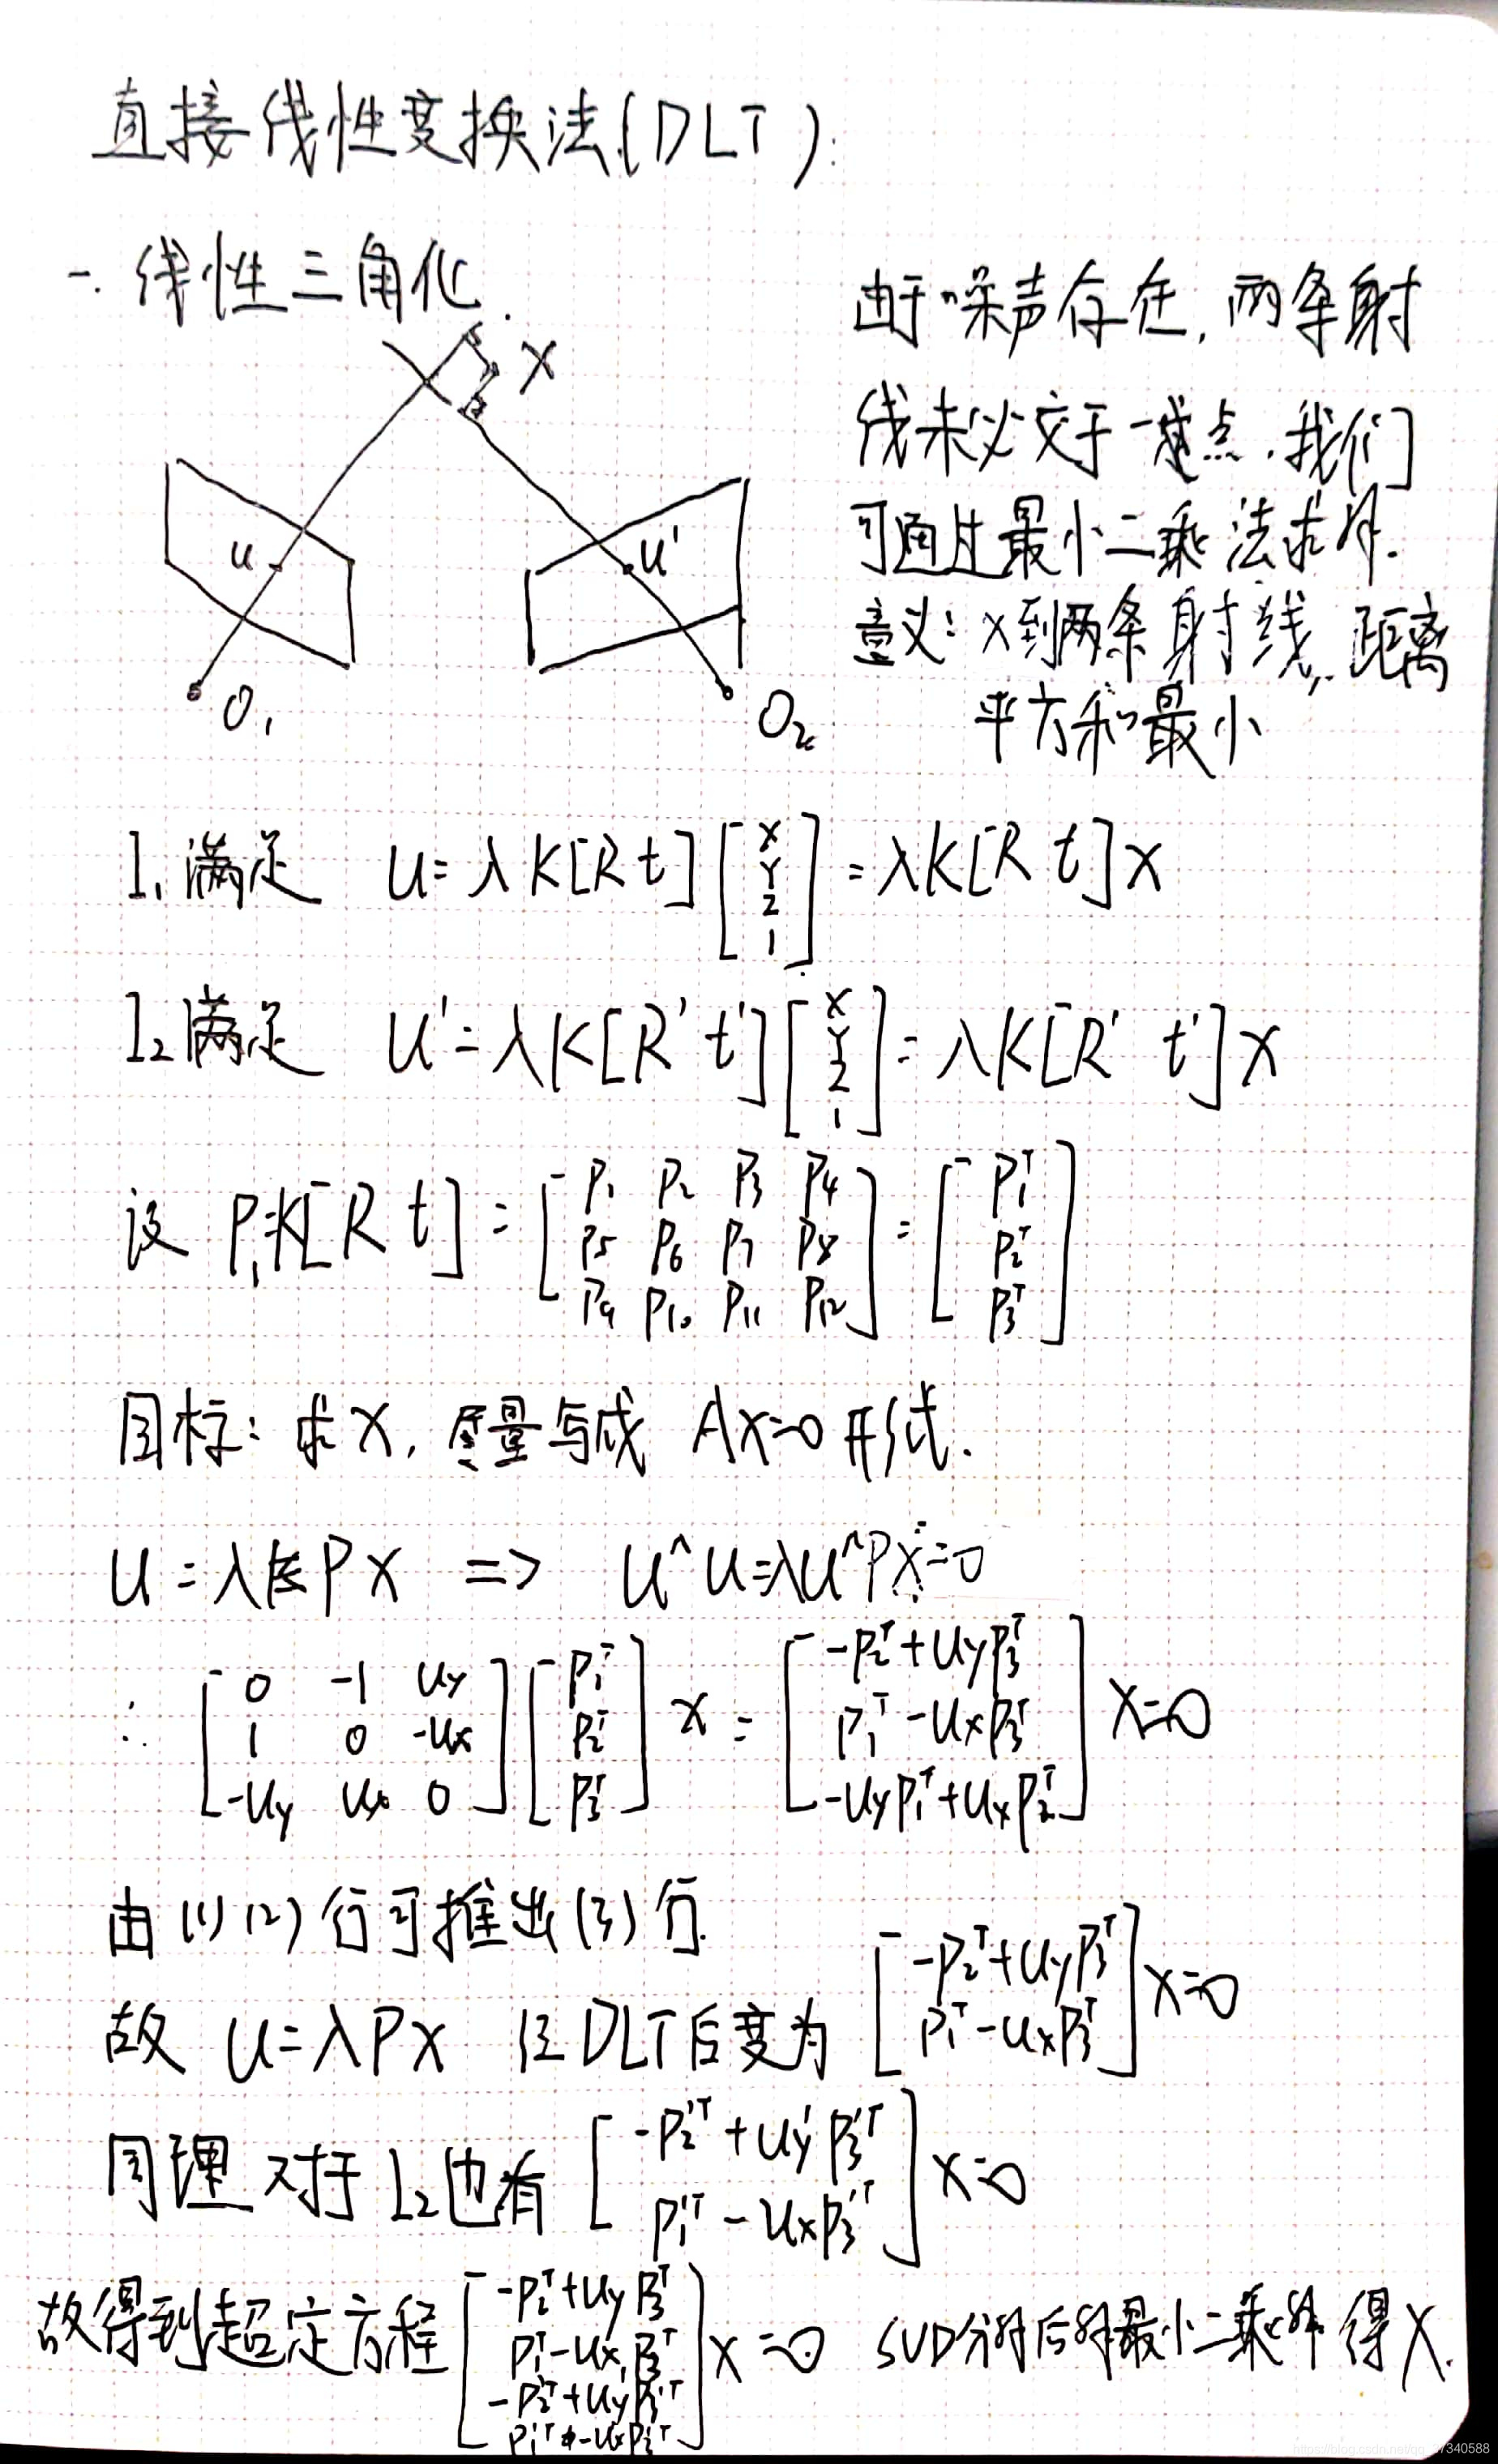 直接线性变换法(DLT):
一. 线性三角化.
由于噪声存在, 两条射
线未必交于一点. 我们
可通过最小二乘法求解.
意义: X到两条射线, 距离
平方和最小
X
u
u'
O₁
O₂
l₁满足 u=λK[R t][X Y Z 1]=λK[R t]X
l₂满足 u'=λK[R' t'][X Y Z 1]=λK[R' t']X
设 P₁=K[R t]=[P₁ P₂ P₃ P₄; P₅ P₆ P₇ P₈; P₉ P₁₀ P₁₁ P₁₂]=[P₁ᵀ; P₂ᵀ; P₃ᵀ]
目标: 求X, 尽量写成 AX=0 形式.
u=λPX => u^u=λu^PX=0
∴ [0 -1 uy; 1 0 -ux; -uy ux 0][P₁ᵀ; P₂ᵀ; P₃ᵀ]X=[-P₂ᵀ+uyP₃ᵀ; P₁ᵀ-uxP₃ᵀ; -uyP₁ᵀ+uxP₂ᵀ]X=0
由(1)(2)行可推出(3)行.
故 u=λPX 经DLT后变为 [-P₂ᵀ+uyP₃ᵀ; P₁ᵀ-uxP₃ᵀ]X=0
同理 对于l₂也有 [-P₂'ᵀ+uy'P₃'ᵀ; P₁'ᵀ-uxP₃'ᵀ]X=0
故得到超定方程 [-P₂ᵀ+uyP₃ᵀ; P₁ᵀ-uxP₃ᵀ; -P₂'ᵀ+uy'P₃'ᵀ; P₁'ᵀ-uxP₃'ᵀ]X=0 SVD分解后解最小二乘解得X.